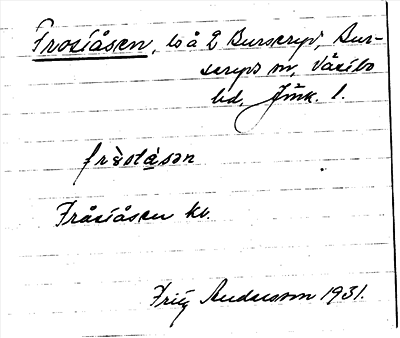 Froståsen, lö å 2 Burseryd, Bur-
seryds sn, Västbo
hd, Jönk. l.
fròstàsən
Fråståsen kv.
Fritz Andersson 1931.